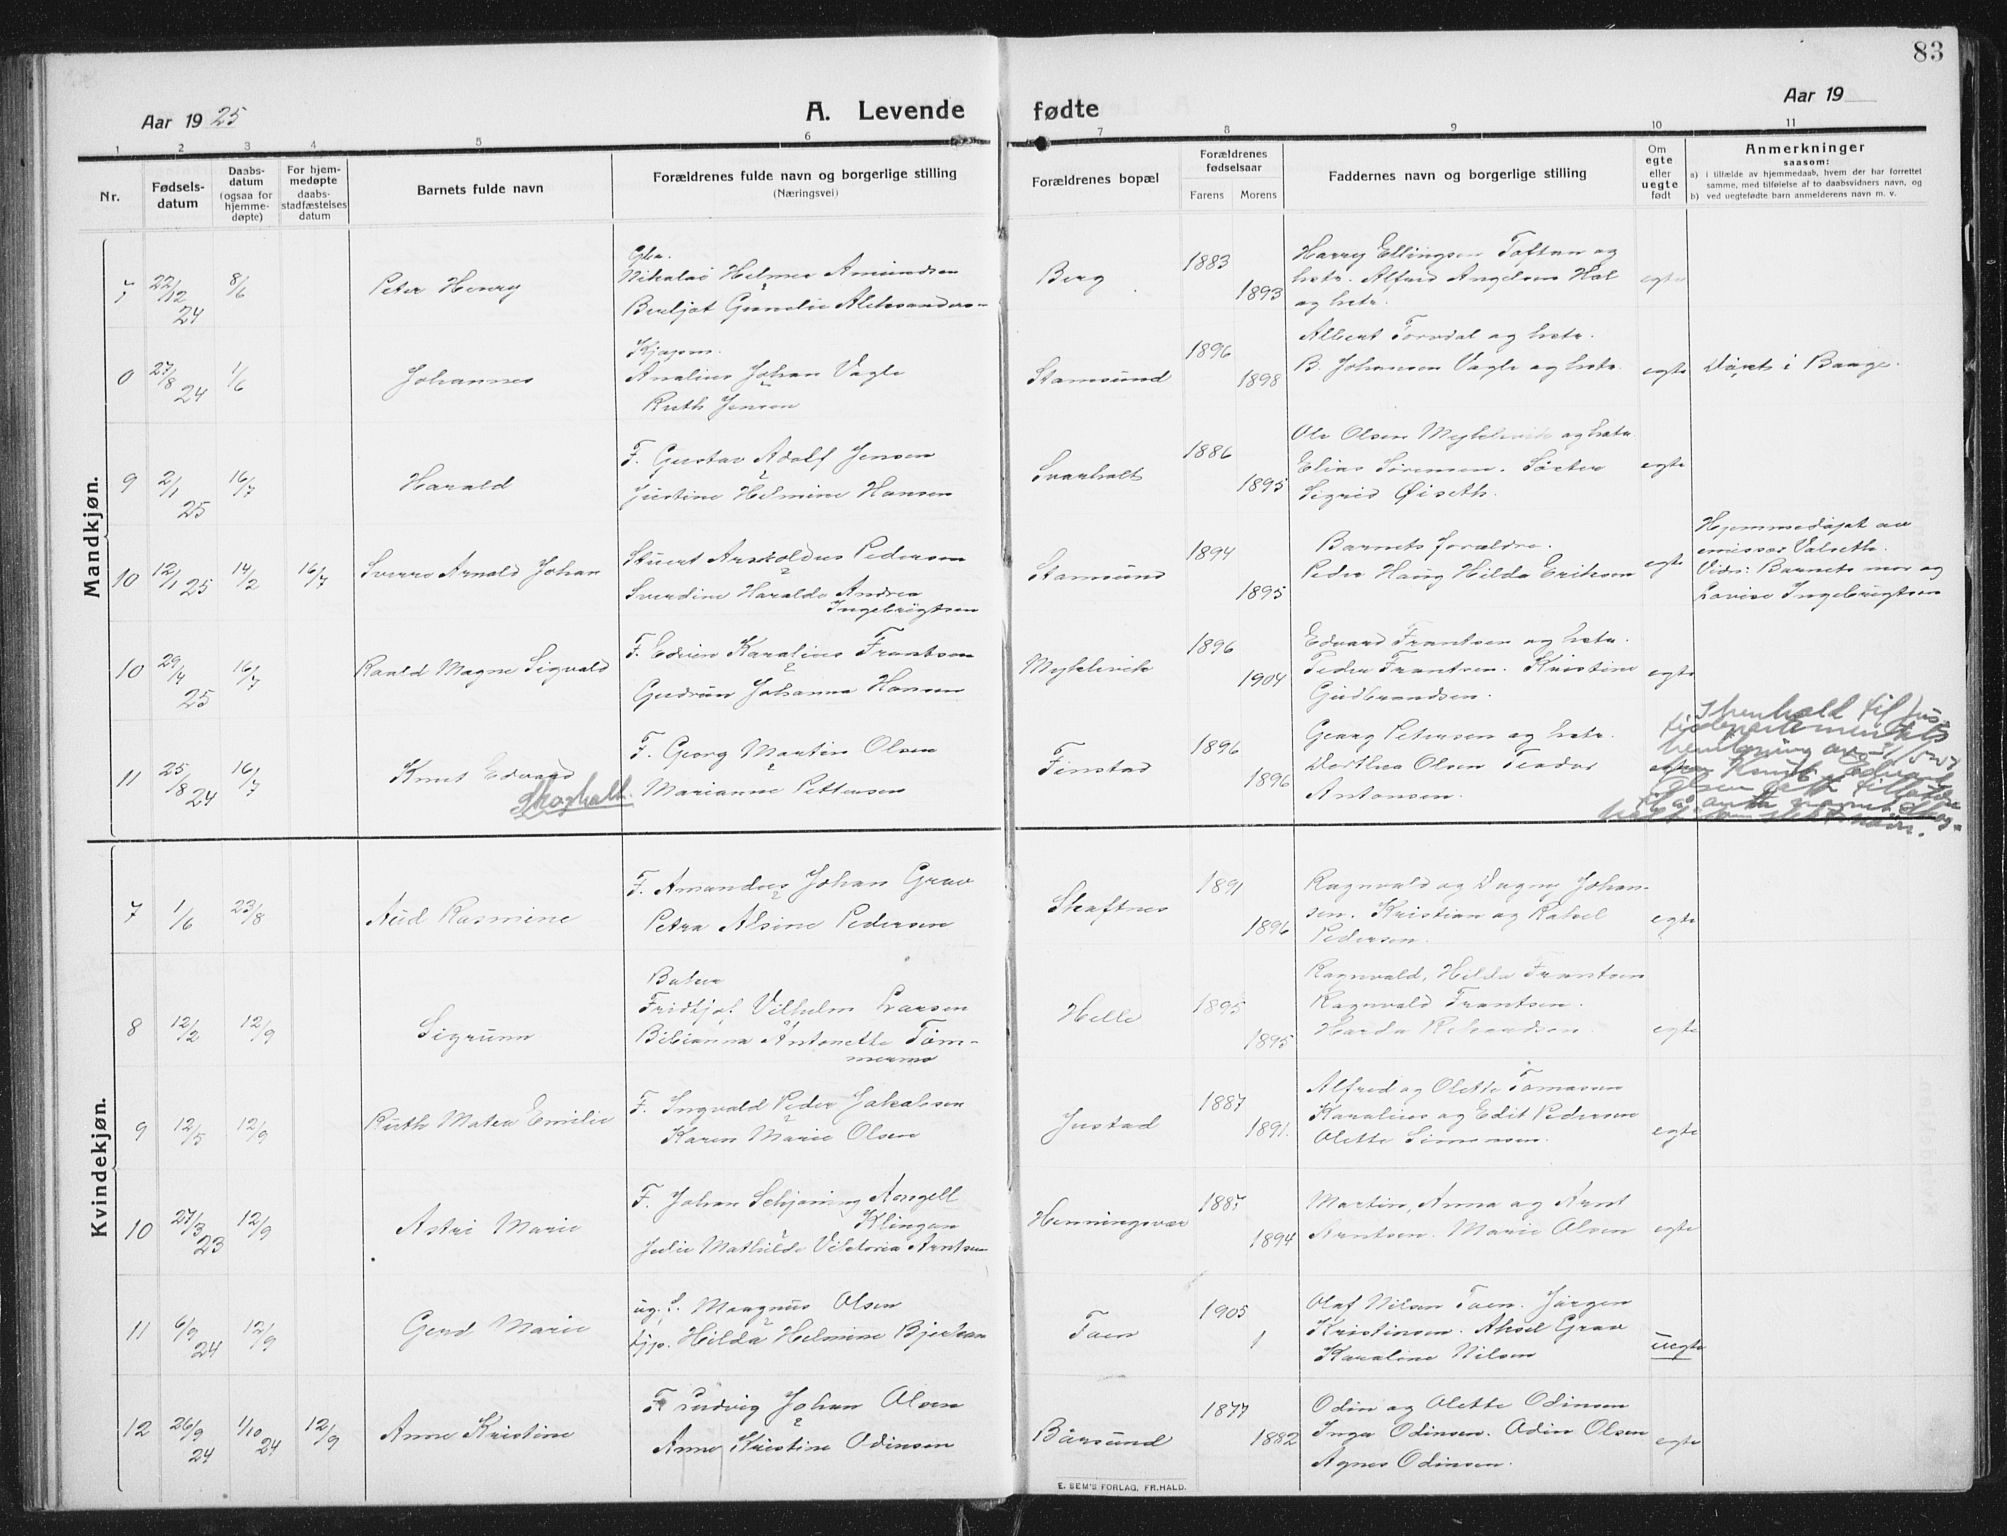 83
Aar 1925
A. Levende fødte
Aar 19
1 2 3 4 5 6 7 8 9 10 11
Nr.
Fødsels-
datum
Daabs-
datum
(ogsaa for
hjemme-
døpte)
For hjem-
medøpte
daabs-
stadfæstelses
datum
Barnets fulde navn
Forældrenes fulde navn og borgerlige stilling
(Næringsvei)
Forældrenes bopæl
Forældrenes
fødselsaar
Farens Morens
Faddernes navn og borgerlige stilling
Om
egte
eller
uegte
født
Anmerkninger
saasom:
a) i tilfælde av hjemmedaab, hvem der har forrettet
samme, med tilføielse af to daabsvidners navn, og
b) ved uegtefødte barn anmelderens navn m. v.
Mandkjøn.
7 22/12 24 8/6 Peter Henry
Gbr.
Nikolai Helmer Amundsen
Berljot Gunelie Aleksanders-
Berg 1883 1893
Harry Ellingsen Toftun og
hstr. Alfred Angelsen Hol
og hstr.
egte
27/8 24 1/6 Johannes
Kjøpm.
Analius Johan Vagle
Ruth Jensen
Stamsund 1896 1898
Albert Torvdal og hstr.
B. Johansen Vagle og hstr.
egte
Døpt i Borge.
9 2/1 25 16/7 Harald
F. Gustav Adolf Jensen
Justine Helmine Hansen
Svarholt 1886 1895
Ole Olsen Myklevik og hstr.
Elias Sørensen. Søster
Sigrid Øiseth.
egte
10 12/1 25 14/2 16/7 Sverre Arnold Johan
Stuert Arskoldus Pedersen
Sverdine Haralda Andrea
Ingebrigtsen
Stamsund 1894 1895
Barnets forældre.
Peder Haug Hilda Eriksen
egte
Hjemmedøpt av
emissær Valseth.
Vidn: Barnets mor og
Lovise Ingebrigtsen
10 29/4 25 16/7 Roald Magne Sigvald
F. Edvin Karalius Frantsen
Gudrun Johanna Hansen
Myklevik 1896 1904
Edvard Frantsen og hstr.
Peder Frantsen. Kristine
Gudbrandsen.
egte
11 25/8 24 16/7 Knut Edvard
Skogholt.
F. Georg Martin Olsen
Marianne Pettersen
Finstad 1896 1896
Georg Petersen og hstr.
Dorthea Olsen Teodor
Antonsen.
I henhold til jus-
tisdepartementets
Knut Edvard
Olsen
Kvindekjøn.
7 1/6 23/8 Aud Rasmine
F. Amandus Johan Grav
Petra Alsine Pedersen
Skaftnes 1891 1896
Ragnvald og Dagny Johan-
sen. Kristian og Rakel
Pedersen.
egte
8 12/2 12/9 Sigrunn
Fridtjof Vilhelm Larsen
Bibianna Antonette Tøm-
mermo
Helle 1895 1895
Ragnvald, Hilda Frantsen
Ragnvald Frantsen.
Harda Rikardsen.
egte
9 12/5 12/9 Ruth Matea Emilie
F. Ingvald Peder Jakobsen
Karen Marie Olsen
Justad 1887 1891.
Alfred og Olette Tomassen
Karalius og Edit Pedersen
Olette Simonsen.
egte
10 27/3 23 12/9 Astri Marie
F. Johan Schjøning Angell
Klingan
Julie Mathilde Viktoria Arntsen
Henningsvær 1887 1894
Martin, Anna og Arnt
Arntsen. Marie Olsen
egte
11 6/9 24 12/9 Gerd Marie
ug. f. Maagnus Olsen
tjp. Hilda Helmine Bjerkan
Toen 1905
Olaf Nilsen Toen. Jørgen
Kristinsen. Aksel Grav
Karaline Nilsen
uegte
12 26/9 24 1/10 24 12/9 Anne Kristine
F. Ludvig Johan Olsen
Anne Kristine Odinsen
Bårsund 1877 1882
Odin og Olette Odinsen
Inga Odinsen. Odin Olsen
Agnes Odinsen.
egte
E. SEM'S FORLAG, FR.HALD.